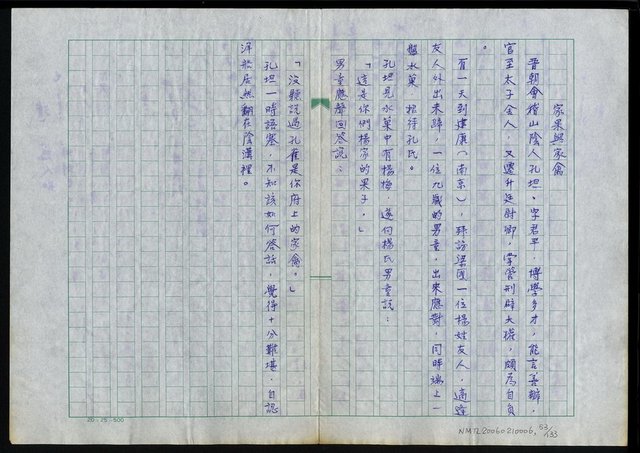 家果與家禽
晉朝會稽山陰人孔坦，字君平，博學多才，能言善辯，
官至太子舍人，又遷升廷尉卿，掌管刑辟大權，頗為自負
。
有一天到建康（南京），拜訪梁國一位楊姓友人，適逢
友人外出未歸，一位九歲的男童，出來應對，同時端上一
盤水菓，招待孔氏。
孔坦見水菓中有楊梅，遂向楊氏男童說：
「這是你們楊家的果子。」
男童應聲回答說：
「沒聽說過孔雀是你府上的家禽。」
孔坦一時語塞，不知該如何答話，覺得十分難堪，自認
洋船居然翻在陰溝裡。
20-25-500
NMTL20060210006, 53/133